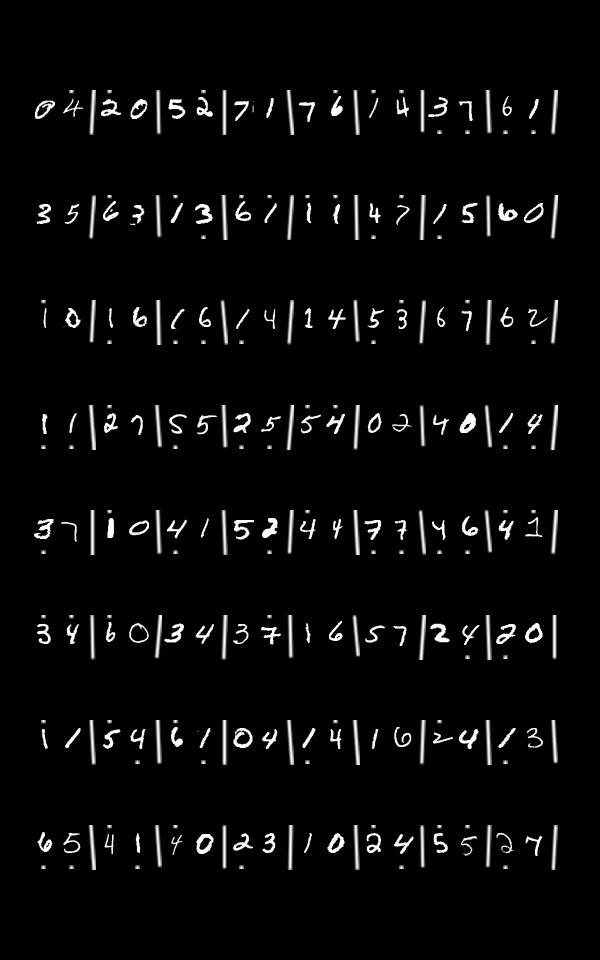 0 4̇ | 2̇ 0 | 5 2̇ | 7 1 | 7 6̇ | 1̇ 4̇ | 3̣ 7̣ | 6̣ 1̣ |
3 5 | 6̇ 3 | 1̇ 3̣ | 6̇ 1̇ | 1̇ 1̇ | 4̣ 7̇ | 1̣ 5 | 6 0 |
1̇ 0 | 1̇ 6 | 1̣ 6̣ | 1̣ 4 | 1 4 | 5̣ 3̇ | 6 7̇ | 6 2̣ |
1̣ 1̣ | 2̇ 7 | 5̣ 5 | 2̣ 5̣ | 5̇ 4̇ | 0 2 | 4 0 | 1̣ 4̣ |
3̣ 7 | 1̇ 0 | 4̣ 1 | 5 2̣ | 4̇ 4 | 7̣ 7̣ | 4̣ 6̣ | 4̇ 1̇ |
3̇ 4̇ | 6̇ 0 | 3 4 | 3 7̇ | 1 6 | 5 7 | 2 4̣ | 2̣ 0 |
1̇ 1 | 5 4̣ | 6̇ 1̣ | 0 4 | 1̣ 4̇ | 1 6 | 2̇ 4 | 1̣ 3 |
6̣ 5̣ | 4̇ 1̣ | 4̇ 0 | 2̣ 3 | 1 0 | 2̇ 4̣ | 5̇ 5̇ | 2̣ 7 |